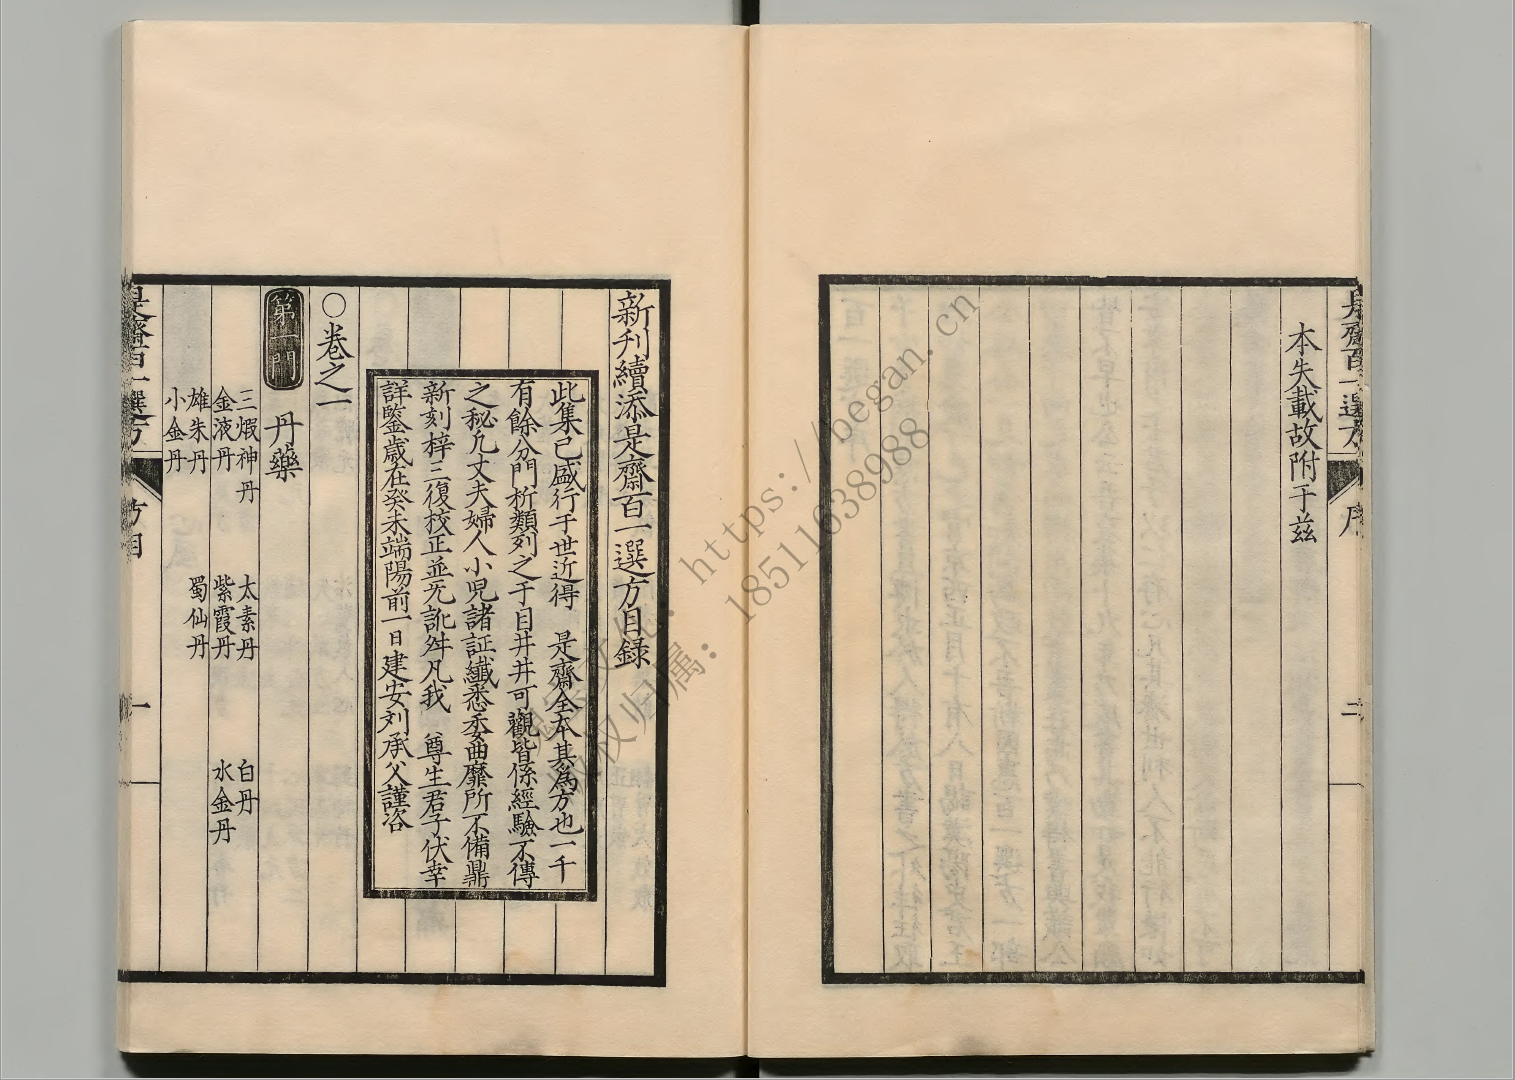 是齋百一選方
序
二
本失載故附于兹
新刋續添是齋百一選方目録
此集已盛行于世近得　是齋全本其爲方也一千
有餘分門析類列之于目井井可觀皆係經驗不傳
之秘凢丈夫婦人小児諸証纎悉委曲靡所不備鼎
新刻梓三復校正並无訛舛凡我　尊生君子伏幸
詳鑒歳在癸未端陽前一日建安刘承父謹咨
○卷之一
第一門　丹藥
三煆神丹　太素丹　白丹
金液丹　紫霞丹　水金丹
雄朱丹　蜀仙丹
小金丹
是齋百一選方
方目
一
https://began.cn
18511638988